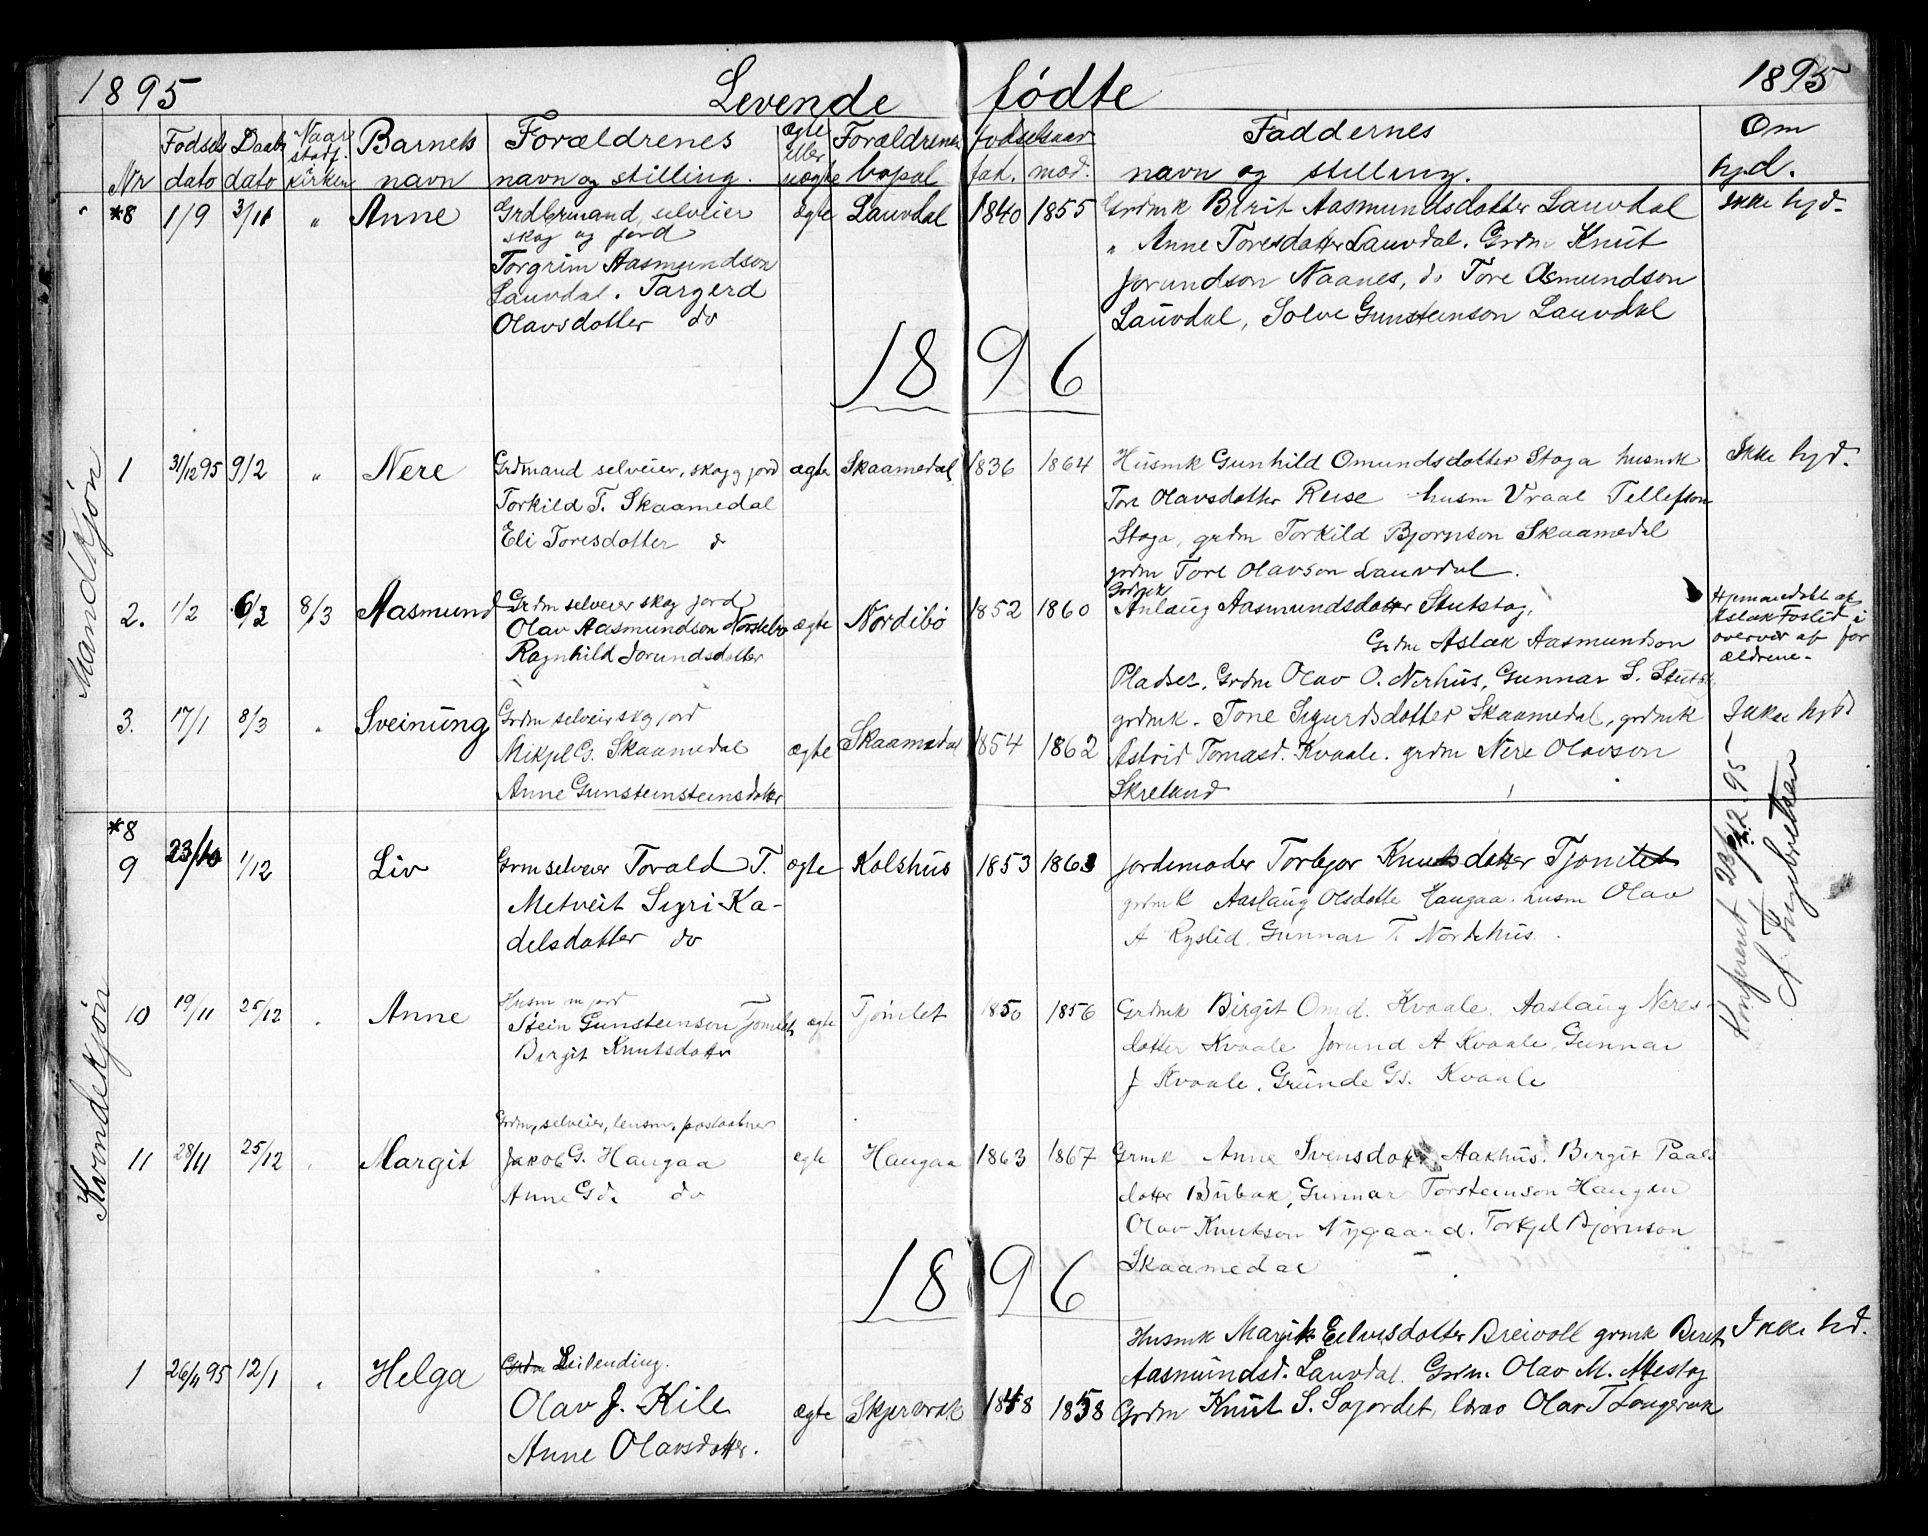 1895 Levende fødte 1895
Nr Fødsels dato Daabs dato Naar stadf. kirken Barnets navn Forældrenes navn og stilling. ægte eller uægte Forældrenes bopæl fødselsaar fad. mod. Faddernes navn og stilling. Om hjd.
Mandkjøn
*8 1/9 3/11 " Anne
Grdbrmand, selveier
skog og jord
Torgrim Aasmundson
Lauvdal. Targerd
Olavsdotter do
ægte Lauvdal 1840 1855
Grdmk Birit Aasmundsdotter Lauvdal
" Anne Toresdotter Lauvdal. Grdm Knut
Jorundson Naanes, do Tore Osmundson
Lauvdal, Solve Gunsteinson Lauvdal
Ikke hjd.
1896
1 31/12 95 9/2 " Nere
Grdmand selveier, skog g jord
Torkild T. Skaamedal
Eli Toresdotter d
ægte Skaamedal 1836 1864
Husmk Gunhild Omundsdotter Stoga husmk
Tore Olavsdotter Reise husm Vraal Tellefson
Stoga, grdm Torkild Bjornson Skaamedal
grdm Tore Olavson Lauvdal.
Ikke hjd.
2. 1/2 6/3 8/3 Aasmund
Grdm selveier skog jord
Olav Aasmundson Nordebø
Ragnhild Jorundsdotter
ægte Nordibø 1852 1860
Grdmk
Anlaug Aasmundsdotter Stutstog,
Grdm Aslak Aasmundson
Pladsen. Grdm Olav O. Nerhus, Gunnar S. Stutst.
Hjemmedøbt af
Aslak Foslid i
overvær af for
ældrene.
3. 17/1 8/3 " Sveinung
Grdm selveier skog jord
Mikjel G. Skaamedal
Anne Gunsteinsteinsdotter
ægte Skaamedal 1854 1862
grdmk. Tone Sigurdsdotter Skaamedal, grdmk
Astrid Tomasd. Kvaale. grdm Nere Olavson
Skreland
Ikke hjd
Kvindekjøn
*8
9 23/10 1/12 Liv
Grm selveier Torald T.
Metveit Sigri Ka-
delsdotter do
ægte Kolshus 1853 1863
Jordemoder Torbjor Knutsdotter Tjomlet
grdmk Aaslaug Olsdotte Haugaa. husm Olav
A Rysted, Gunnar T. Nordehus.
Konfereret 28/12. 95
A. Ingebretsen
10 19/11 25/12 " Anne
Husm m jord
Stein Gunsteinson Tjomlet
Birgit Knutsdotter
ægte Tjomlet 1850 1856
Grdmk Birgit Omd. Kvaale, Aaslaug Neres-
dotter Kvaale Jorund A Kvaale, Gunnar
J Kvaale, Grunde Gs. Kvaale
11 28/11 25/12 " Margit
Grdm, selveier, lensm, postaabner
Jakob G. Haugaa
Anne G d. do
ægte Haugaa 1863 1867
Grmk Anne Svensdotter Aakhus. Birgit Paals
dotter Bubak, Gunnar Torsteinson Haugen
Olav Knutson Nygaard. Torkjel Bjørnson
Skaamedal
1896
1 26/11 95 12/1 " Helga
Grdm Leilending.
Olav J. Kile
Anne Olavsdotter.
ægte Skjervrak 1848 1858
Husmk Margit Eilevsdotter Breivoll grmk Birit
Aasmundsd. Lauvdal. Grdm. Olav M. Mestog
Grdm Knut S. Sojordet, lærer Olav T Longerak
Ikke hd.